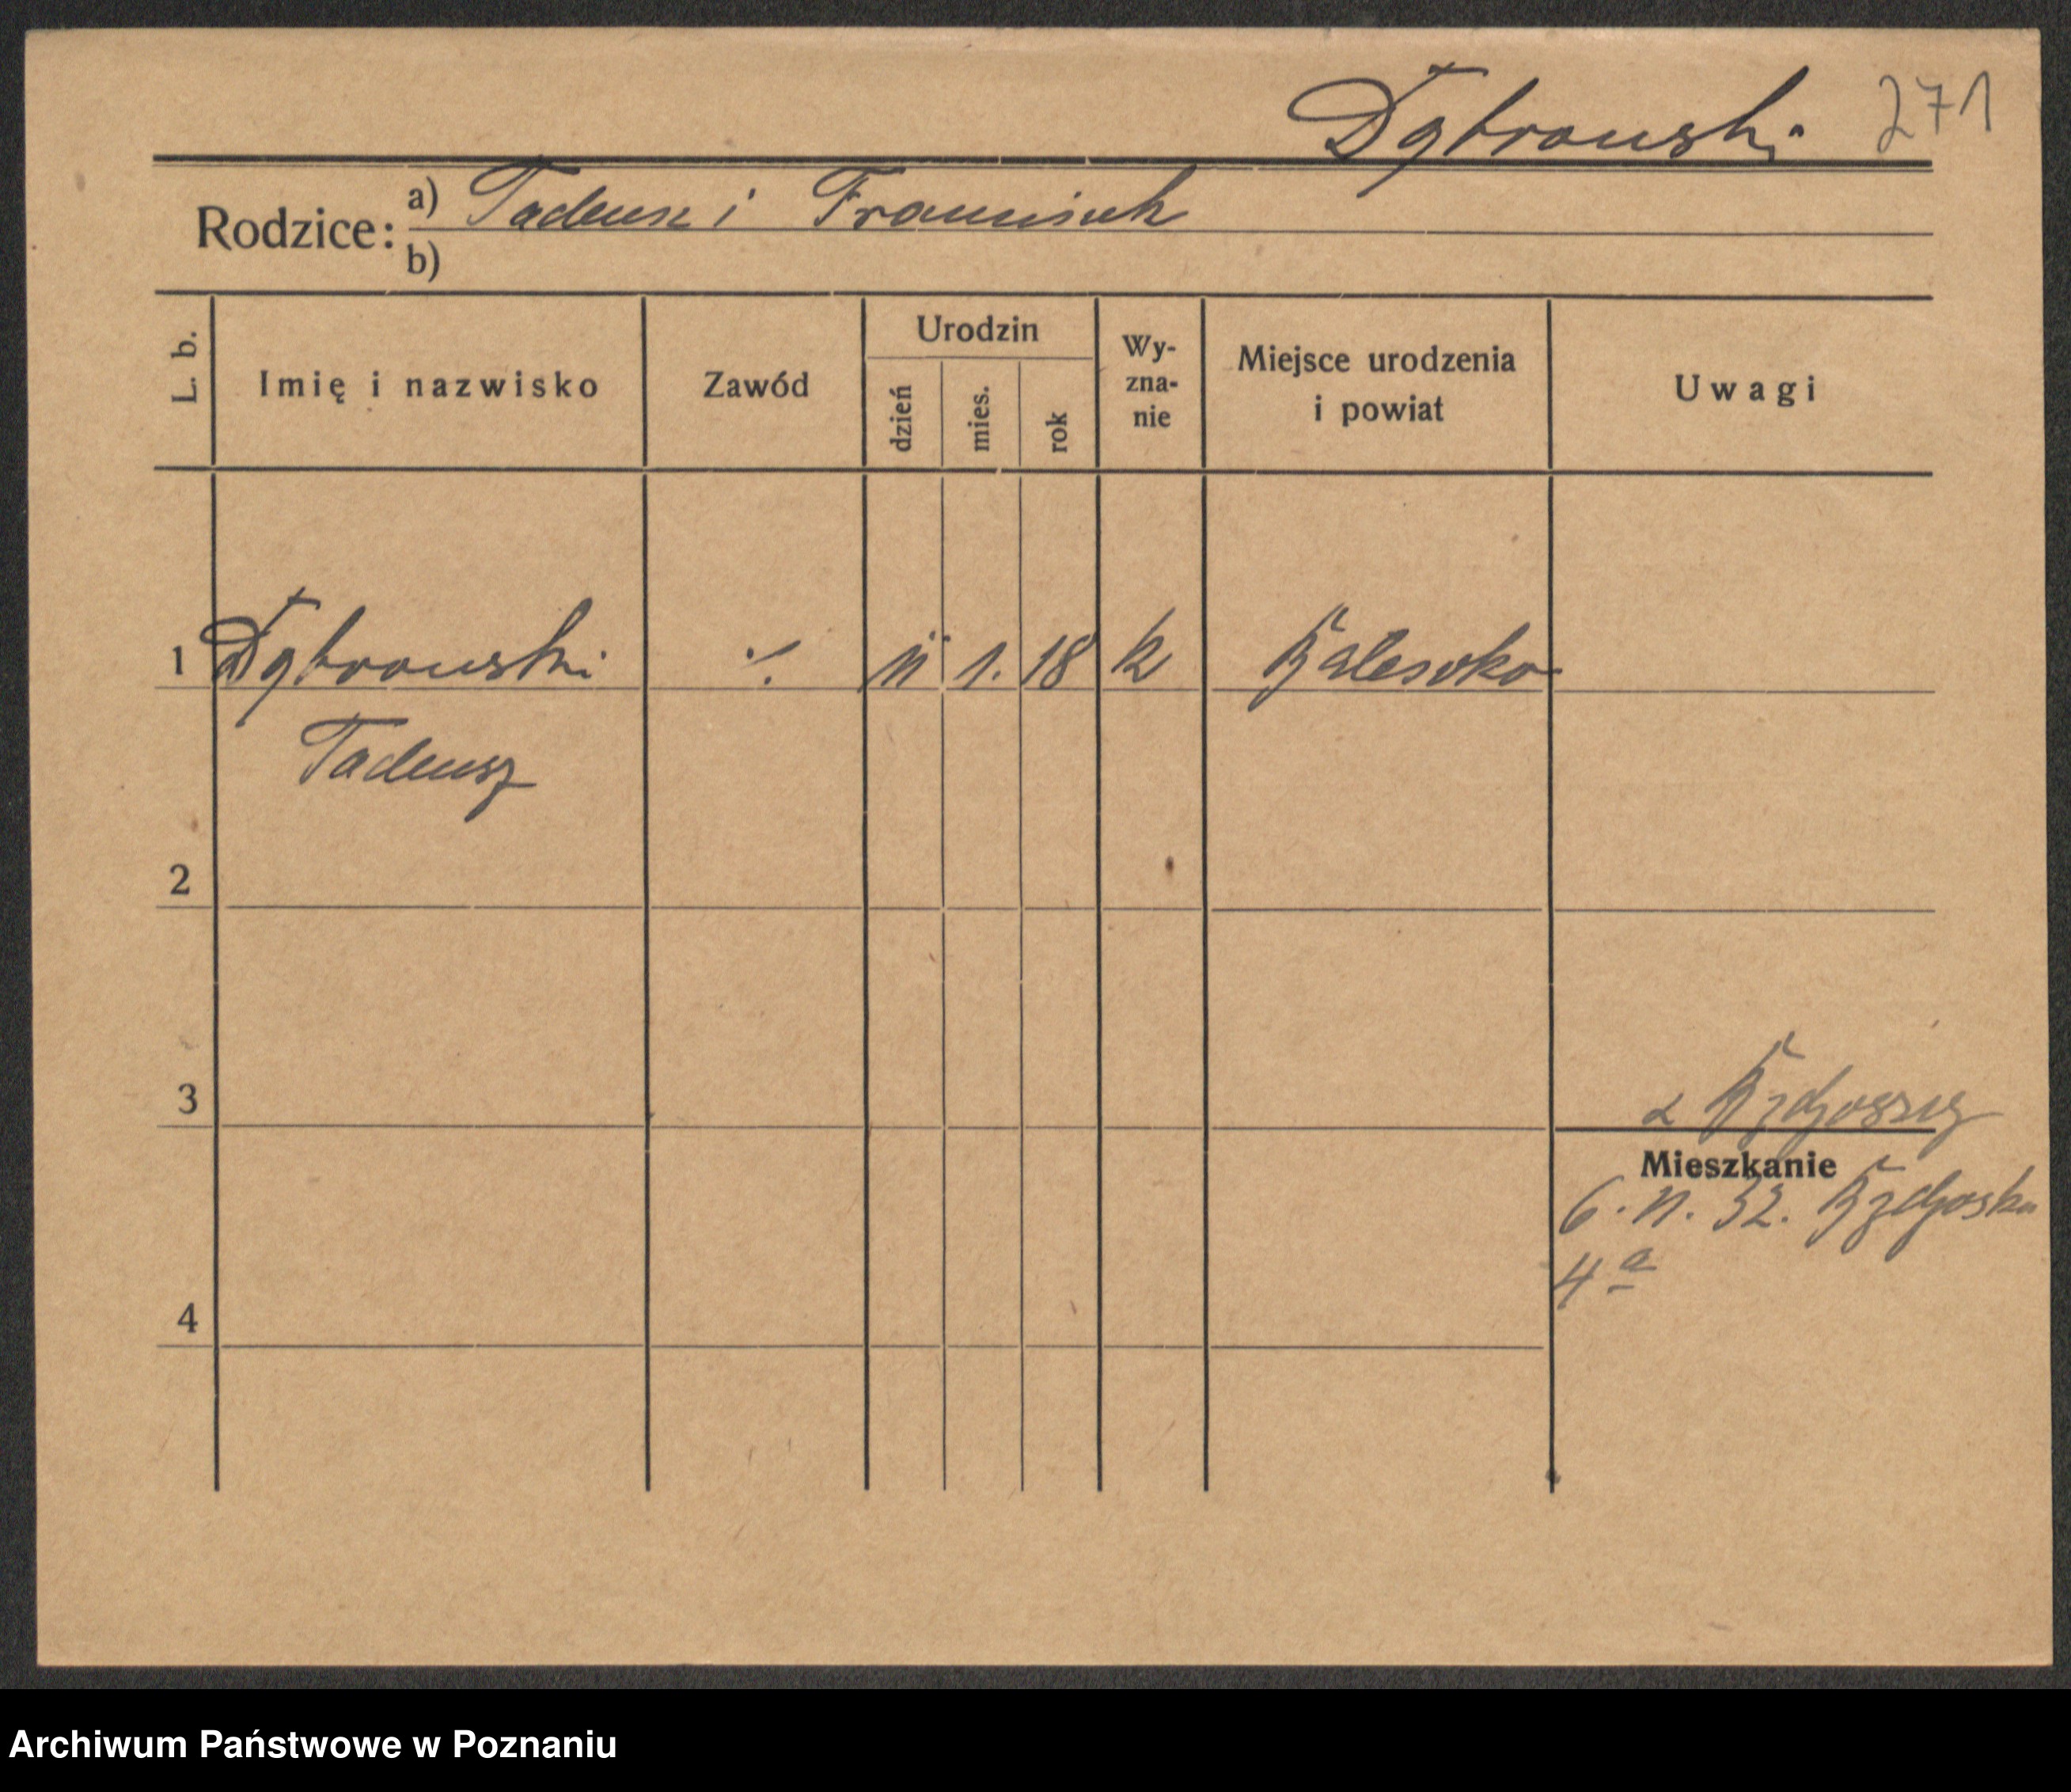 Dąbrowski 271
Rodzice: a) Tadeusz i Franciszk
b)
L. b. Imię i nazwisko Zawód Urodzin dzień mies. rok Wy-zna-nie Miejsce urodzenia i powiat Uwagi
1 Dąbrowski ./. 11 1. 18 k
Tadeusz
2
3 z Bydgoszczy
Mieszkanie
6. 11. 32. Bydgoska
4 a
4
Archiwum Państwowe w Poznaniu